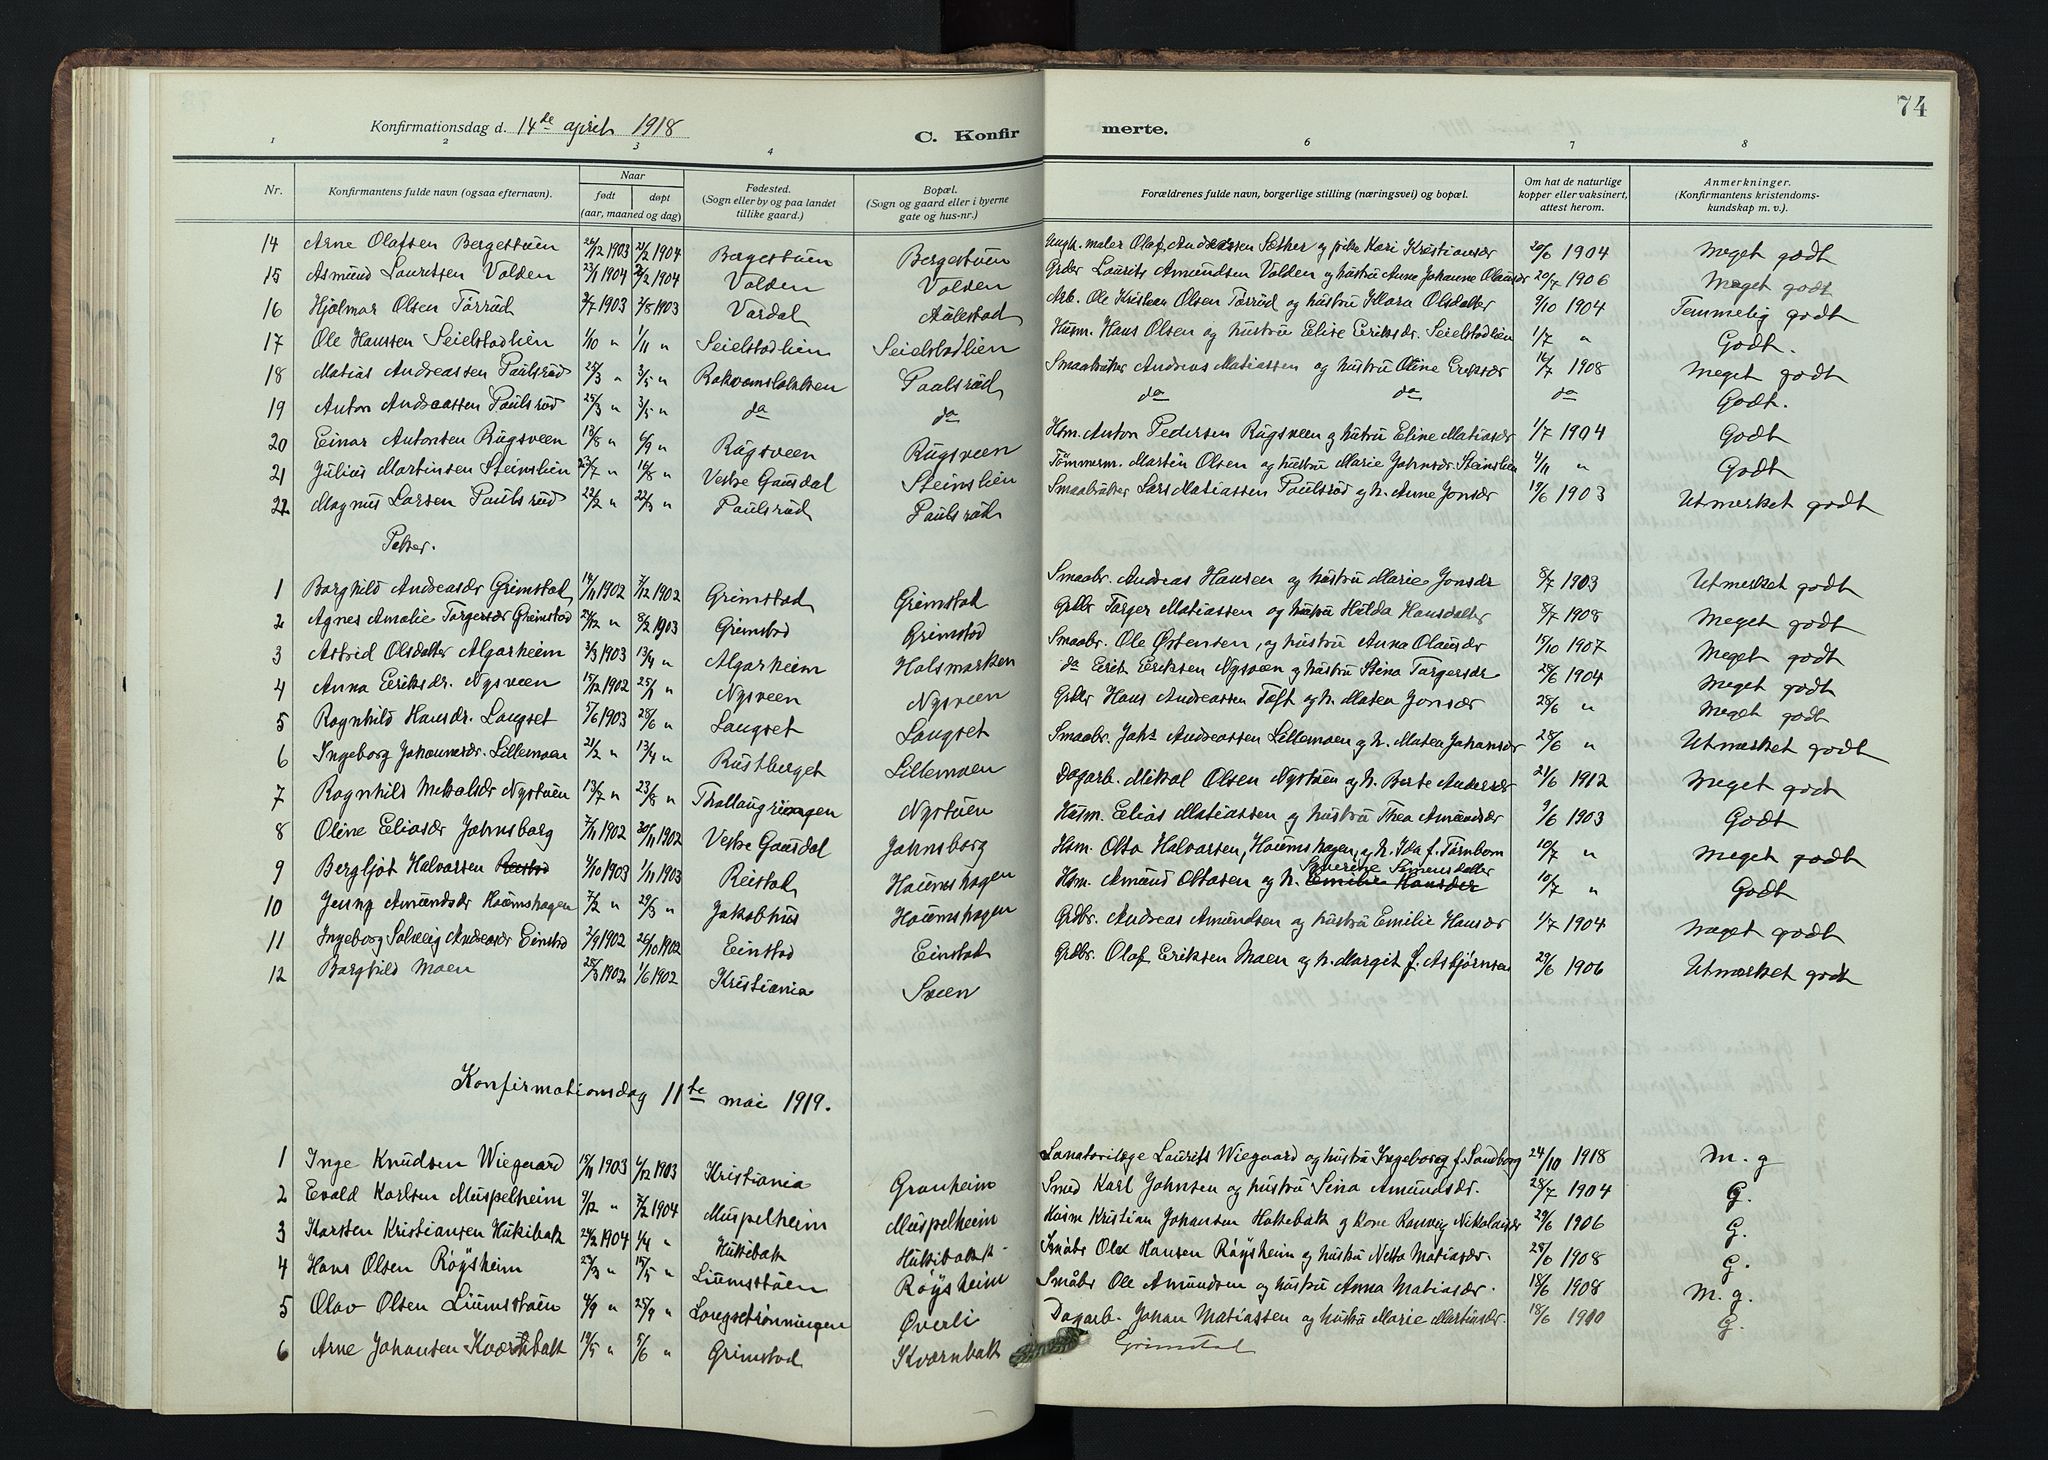 74
Konfirmationsdag d. 14de april 1918
C. Konfirmerte.
1 2 3 4 6 7 8
Nr. Konfirmantens fulde navn (ogsaa efternavn). Naar født døpt (aar, maaned og dag) Fødested. (Sogn eller by og paa landet tillike gaard.) Bopæl. (Sogn og gaard eller i byerne gate og hus-nr.) Forældrenes fulde navn, borgerlige stilling (næringsvei) og bopæl. Om hat de naturlige kopper eller vaksinert, attest herom. Anmerkninger. (Konfirmantens kristendomskundskap m. v.)
14 Arne Olafsen Bergestuen 26/12 1903 21/2 1904 Bergestuen Bergestuen Ungk. maler Olaf Andreassen Sæther og pike Kari Kristiansdr 20/6 1904 Meget godt
15 Asmund Lauritsen Volden 23/1 1904 1904 Volden Volden Grdbr Laurits Amundsen Volden og hustru Anne Johanne Olausdr 20/7 1906 Meget godt
16 Hjalmar Olsen Tørrud 3/7 1903 2/8 1903 Vardal Aulestad Arb. Ole Kristian Olsen Tørrud og hustru Klara Olsdatter 9/10 1904 Temmelig godt
17 Ole Hansen Seielstadlien 1/10 " 1/11 " Seielstadlien Seielstadlien Husm. Hans Olsen og hustru Elise Eriksdr. Seielstadlien 1/7 " Godt.
18 Matias Andreassen Paulsrud 25/3 " 3/5 " Paalsrud Smaabruker Andreas Matiassen og hustru Oline Eriksdr 16/7 1908 Meget godt
19 Anton Andreassen Paulsrud 25/3 " 3/5 " do do do do do Godt.
20 Einar Antonsen Rugsveen 13/8 " 6/9 " Rugsveen Rugsveen Hsm. Anton Pedersen Rugsveen og hustru Eline Matiasdr 1/7 1904 Godt
21 Julius Martinsen Steinslien 23/7 " 16/8 " Vestre Gausdal Steinslien Tømmerm. Martin Olsen og hustru Marie Johnsdr. Steinslien 4/11 " Godt
22 Magnus Larsen Paulsrud 22/2 " 22/3 " Paulsrud Paulsrud Smaabruker Lars Matiassen Paulsrud og h. Anne Jonsdr 19/6 1903 Utmerket godt
Piker.
1 Borghild Andreasdr Grimstad 14/11 1902 7/12 1902 Grimstad Grimstad Smaabr. Andreas Hansen og hustru Marie Jonsdr 8/7 1903 Utmerket godt
2 Agnes Amalie Torgersdr Grimstad 24/12 " 8/2 1903 Grimstad Grimstad Grdbr Torger Matiassen og hustru Hulda Hansdatter 8/7 1908 Meget godt
3 Astrid Olsdatter Algarheim 3/3 1903 13/4 " Algarheim Halsmarken Smaabr. Ole Østensen, og hustru Anna Olausdr 15/10 1907 Meget godt
4 Anna Eriksdr. Nysveen 15/12 1902 25/1 " Nysveen Nysveen do Erik Eriksen Nysveen og hustru Stina Torgersdr 28/6 1904 Meget godt
5 Ragnhild Hansdr. Langset 5/6 1903 28/6 " Langset Langset Grdbr Hans Andreassen Toft og h. Maten Jonsdr 28/6 " Meget godt
6 Ingeborg Johannesdr. Lillemoen 21/2 " 13/4 " Rustberget Lillemoen Smaabr. Johs Andreassen Lillemoen og h. Matea Johansdr 28/6 " Utmerket godt
7 Ragnhild Mikalsdr Nystuen 13/7 " 23/8 " Nystuen Dagarb. Mikal Olsen Nystuen og h. Berte Andersdr 21/6 1912 Meget godt
8 Oline Eliasdr Johnsborg 7/11 1902 30/11 1902 Vestre Gausdal Johnsborg Husm. Elias Matiassen og hustru Thea Amundsdr 9/6 1903 Godt
9 Bergljot Halvorsen Reistad 7/10 1903 1/11 1903 Reistad Houmshagen Hsm. Otto Halvorsen, Houmshagen, og h. Ida f. Tørnbom 10/7 " Meget godt
10 Jenny Amundsdr Houmshagen 7/2 " 29/3 " Jakobhus Houmshagen Hsm. Amund Ottosen og h. Severine Simensdatter Emilie Hansdr 10/7 " Godt
11 Ingeborg Solveig Andreasdr Einstad 3/9 1902 26/10 1902 Einstad Einstad Grdbr. Andreas Amundsen og hustru Emilie Hansdr 1/7 1904 Meget godt
12 Borghild Moen 25/3 1902 1/6 1902 Kristiania Sveen Grdbr. Olaf Eriksen Moen og h. Margit f. Asbjørnsen 29/6 1906 Utmerket godt
Konfirmationsdag 11te mai 1919.
1 Inge Knudsen Wiegaard 15/11 1903 6/12 1903 Kristiania Granheim Sanatorilæge Laurits Wiegaard og hustru Ingeborg f. Sandborg 24/10 1918 M. g
2 Evald Karlsen Muspelheim 9/12 " 7/2 1904 Muspelheim Muspelheim Smed Karl Johnsen og hustru Sina Amundsdr. 28/7 1904 G.
3 Karsten Kristiansen Hukibak 24/2 1904 4/4 " Hukibak Hukibakk Husm Kristian Johansen Hukkebak og kone Ranveig Nikolausdr 29/6 1906 G.
4 Hans Olsen Røysheim 27/3 " 15/5 " Liumsstuen Røysheim Småbr Olav Hansen Røysheim og hustru Netta Matiasdr. 28/6 1908 G.
5 Olav Olsen Liumsstuen 4/9 " 25/9 " Langsetrønningen Øverli Småbr Ole Amundsen og hustru Anna Matiasdr. 18/6 1908 M. g.
6 Arne Johansen Kværnbak 19/5 " 5/6 " Grimstad Kværnbak Dagarb. Johan Matiassen og hustru Marie Martinsdr 18/6 1910 G.
Grimstad